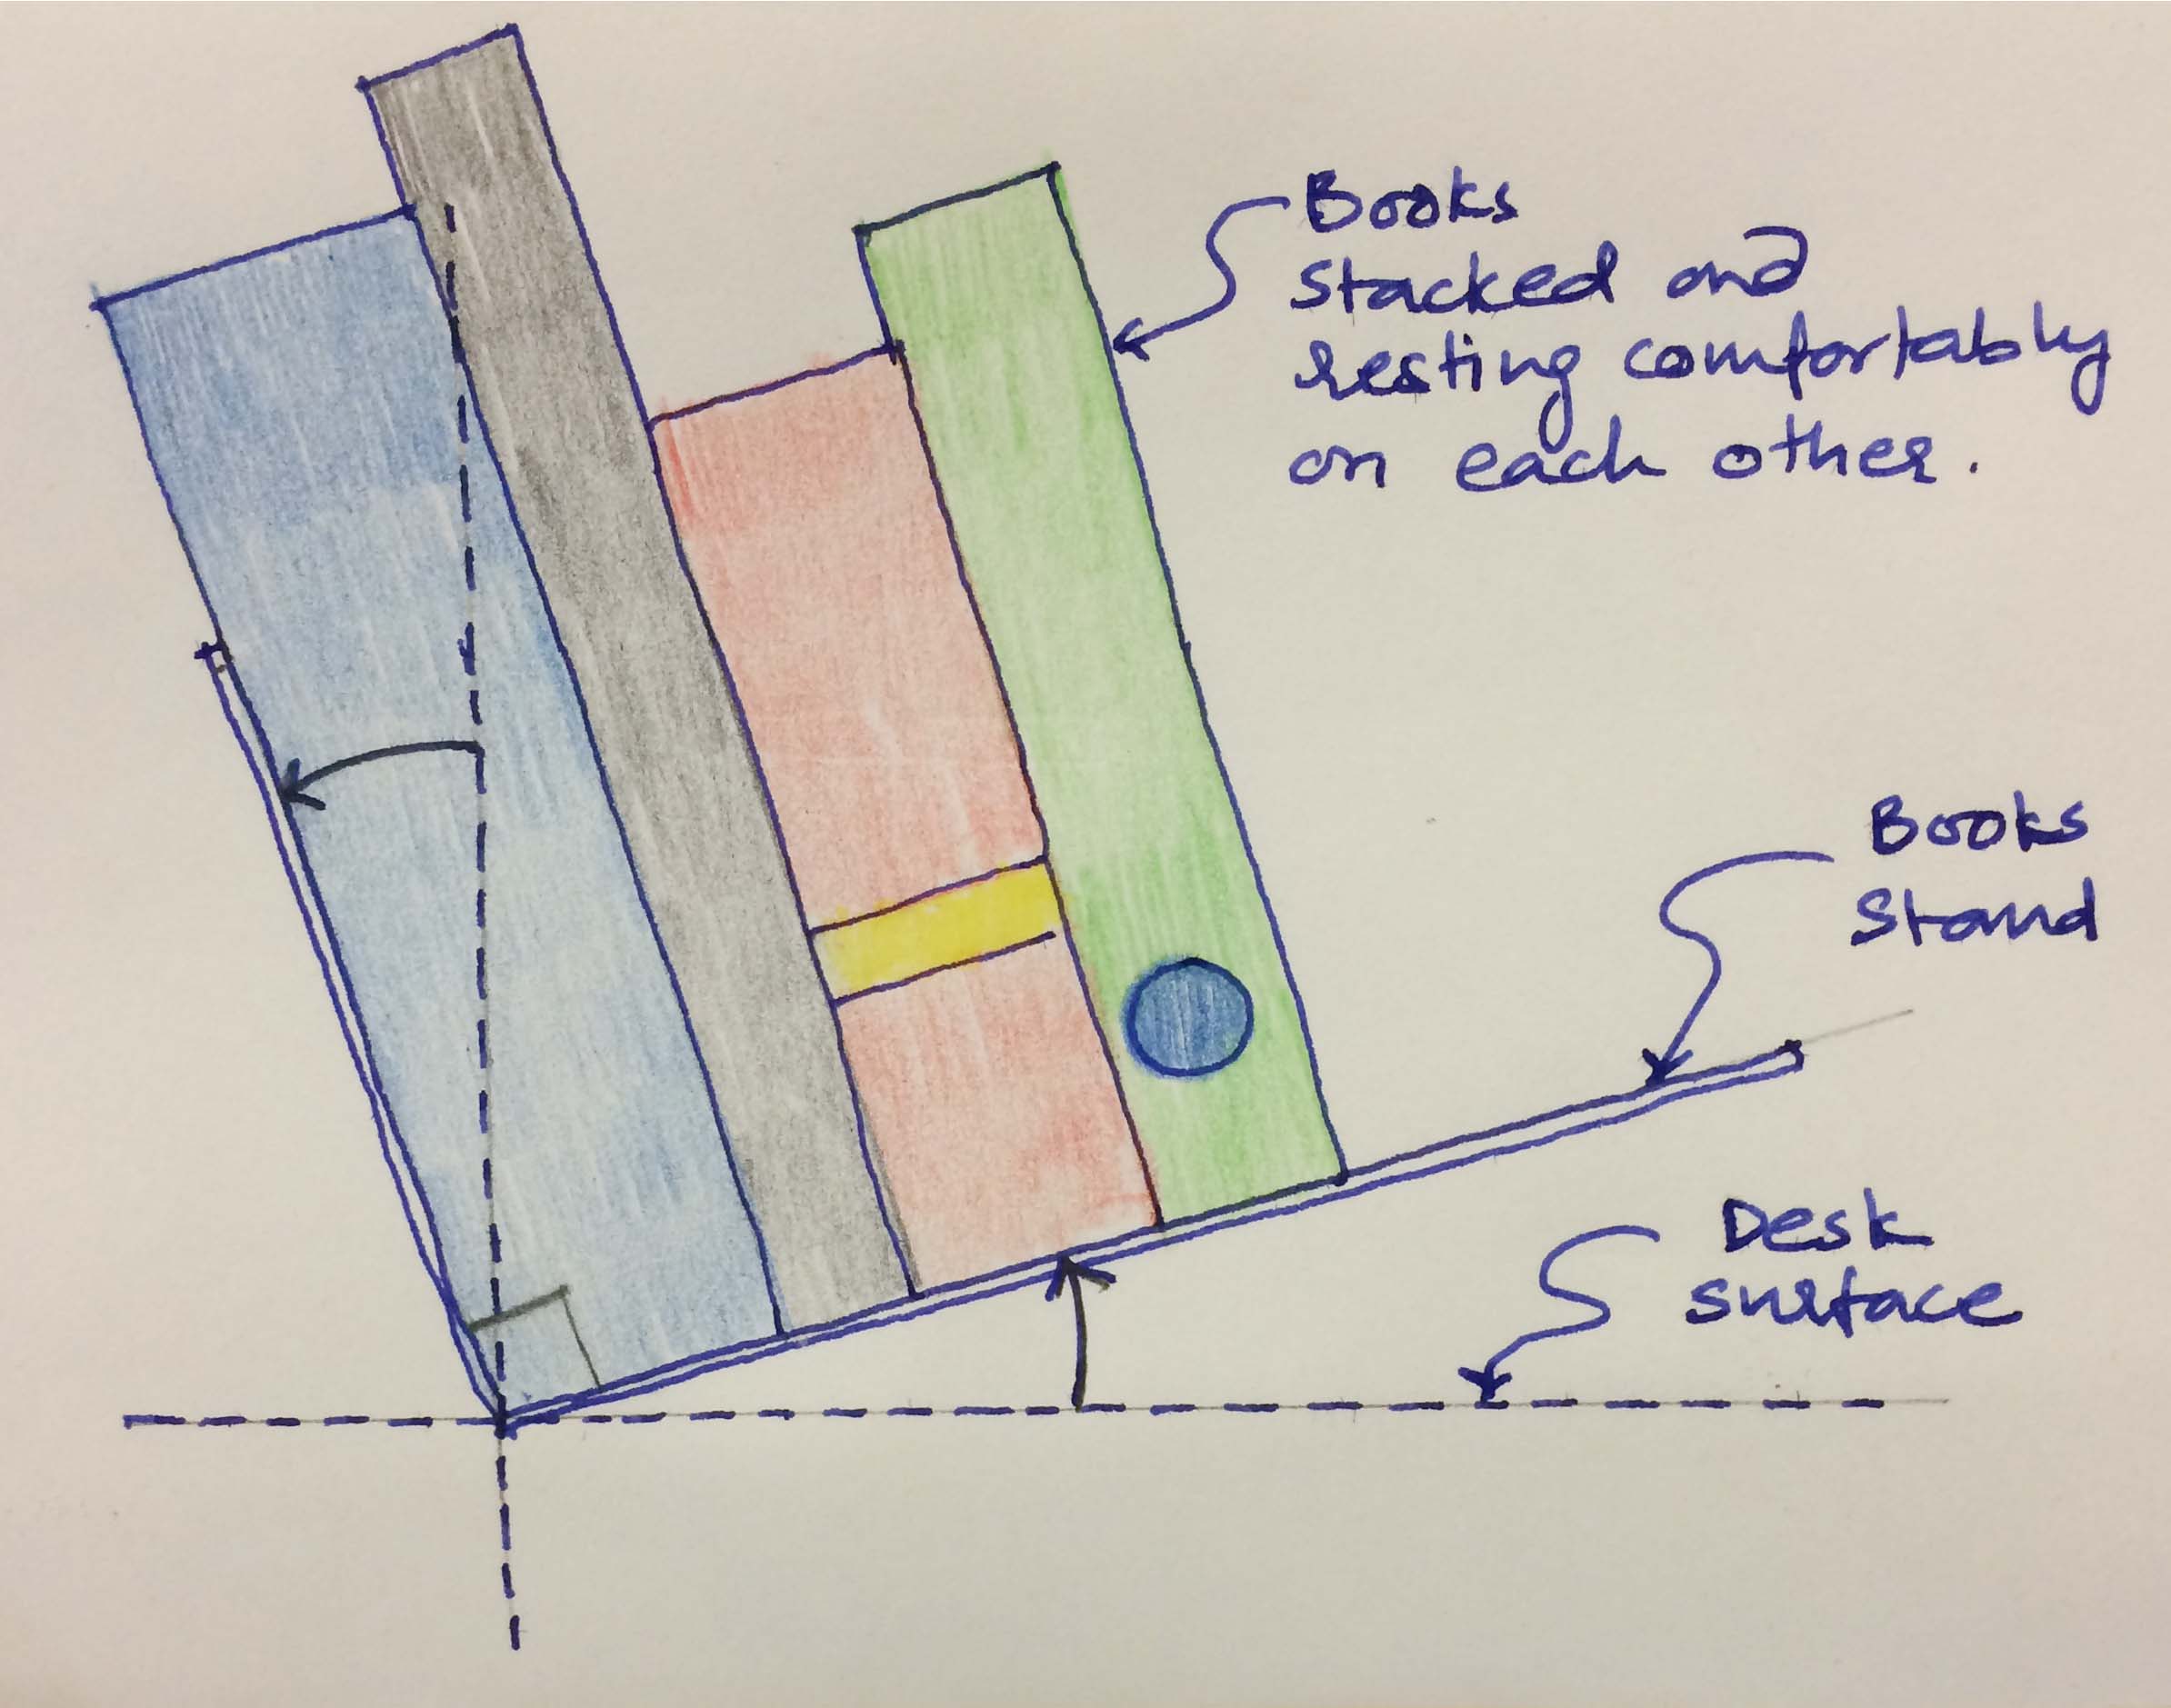 Books
stacked and
resting comfortably
on each other.
Books
Stand
Desk
surface